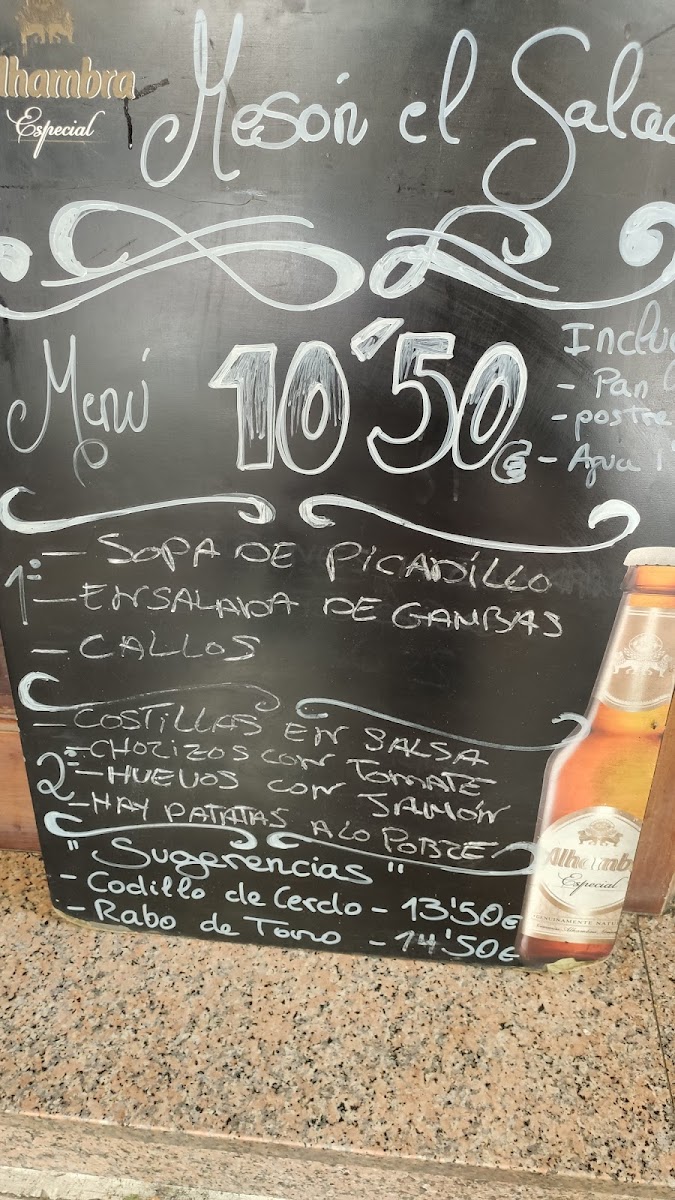 Alhambra
Especial
Mesón el Salad
Menú 10'50€
Incluy
- Pan
- postre
- Agua
1º
- SOPA DE PICADILLO
- ENSALADA DE GAMBAS
- CALLOS
2º
- COSTILLAS EN SALSA
- CHORIZOS CON TOMATE
- HUEVOS CON JAMÓN
- HAY PATATAS A LO POBRE
"Sugerencias"
- Codillo de Cerdo - 13'50€
- Rabo de Toro - 14'50€
Alhambra
Especial